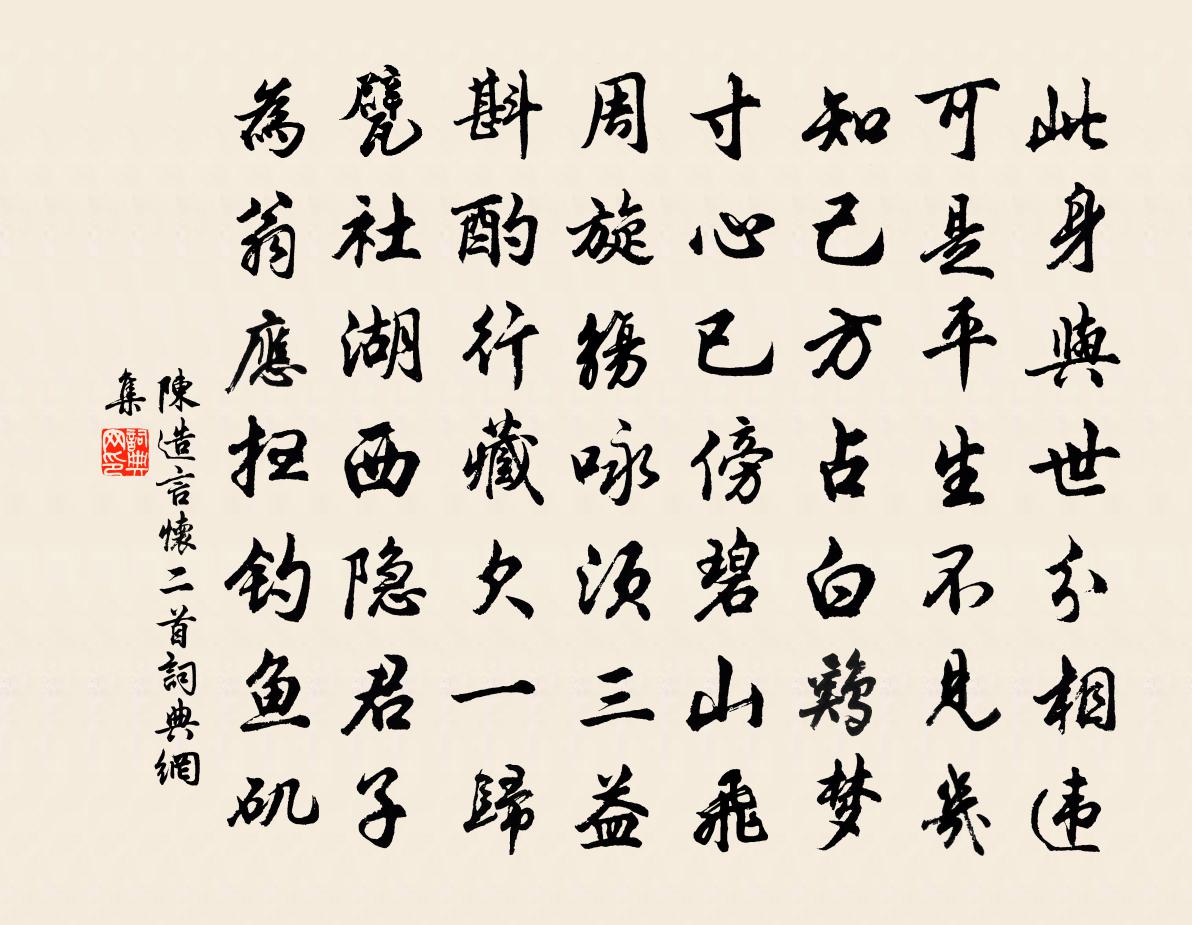 此身與世分相违
可是平生不見幾
知己方占白鷄梦
寸心已傍碧山飛
周旋觴咏須三益
斟酌行藏欠一歸
甓社湖西隐君子
為翁應扫钓鱼矶
陳造言懷二首詞典網
集
詞典网印